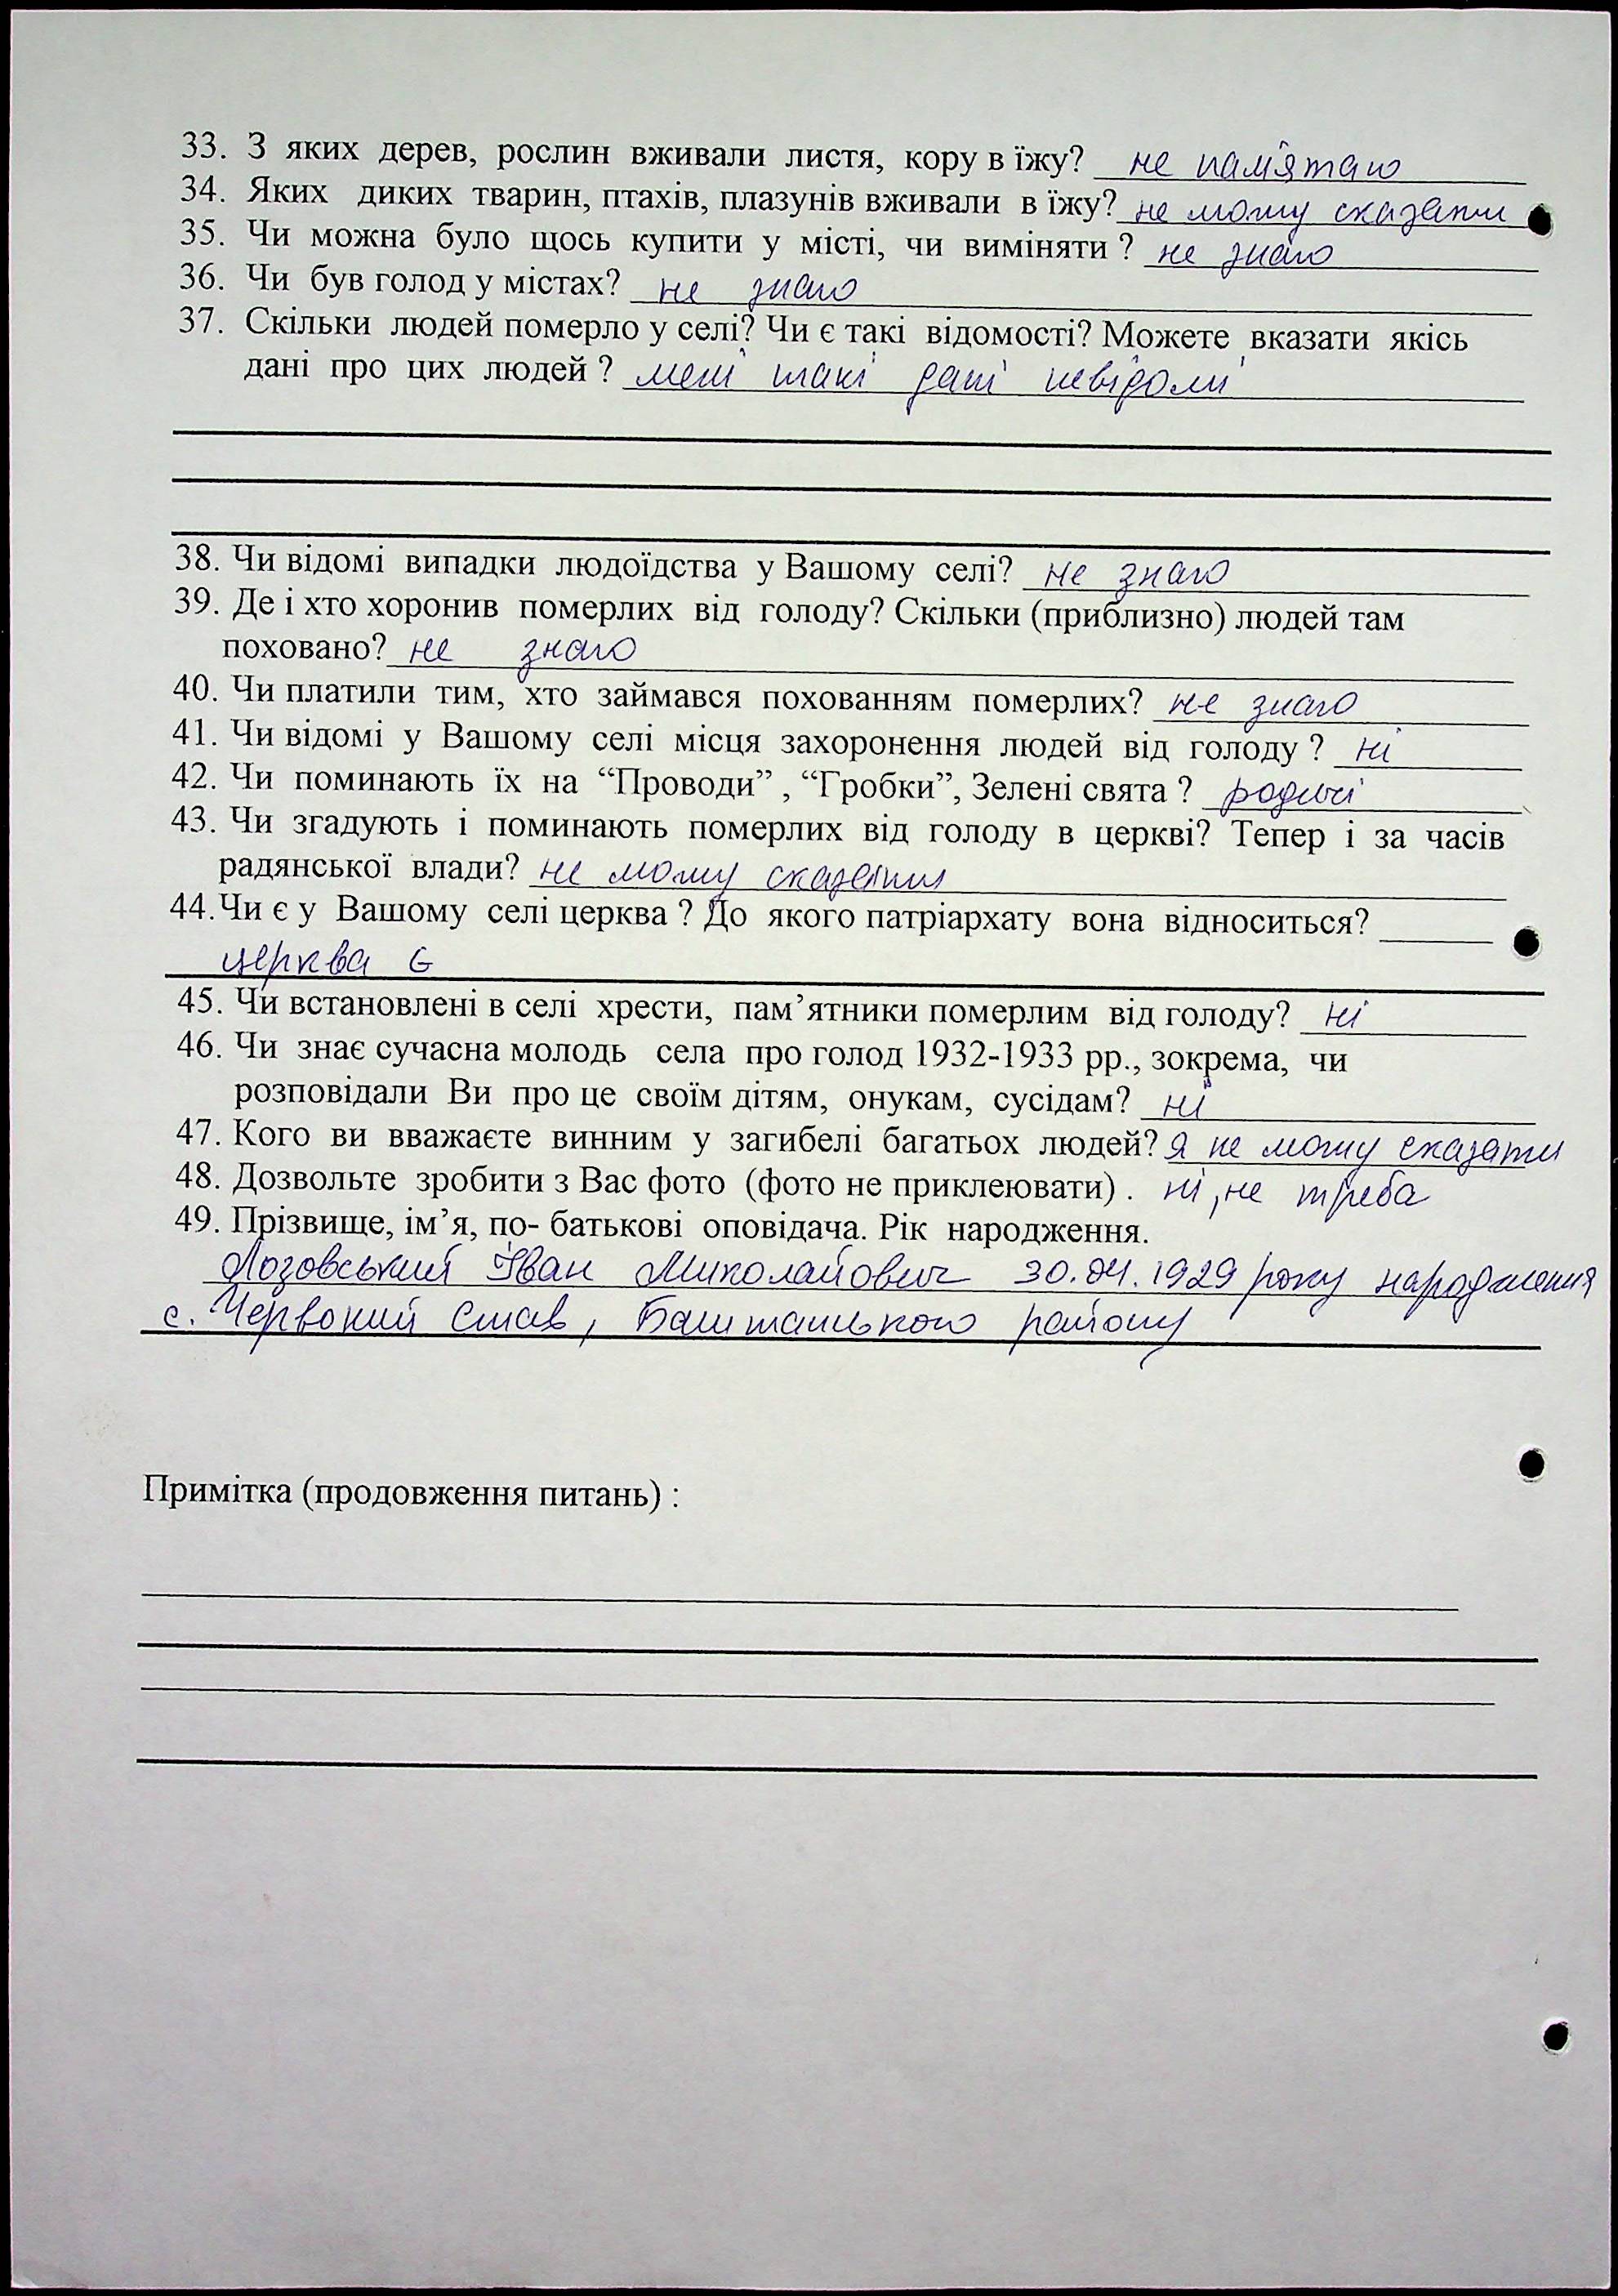 33. З яких дерев, рослин вживали листя, кору в їжу? не пам'ятаю
34. Яких диких тварин, птахів, плазунів вживали в їжу? не можу сказати
35. Чи можна було щось купити у місті, чи виміняти ? не знаю
36. Чи був голод у містах? не знаю
37. Скільки людей померло у селі? Чи є такі відомості? Можете вказати якісь
дані про цих людей ? мені такі дані невідомі
38. Чи відомі випадки людоїдства у Вашому селі? не знаю
39. Де і хто хоронив померлих від голоду? Скільки (приблизно) людей там
поховано? не знаю
40. Чи платили тим, хто займався похованням померлих? не знаю
41. Чи відомі у Вашому селі місця захоронення людей від голоду ? ні
42. Чи поминають їх на “Проводи” , “Гробки”, Зелені свята ? родичі
43. Чи згадують і поминають померлих від голоду в церкві? Тепер і за часів
радянської влади? не можу сказати
44.Чи є у Вашому селі церква ? До якого патріархату вона відноситься?
церква є
45. Чи встановлені в селі хрести, пам’ятники померлим від голоду? ні
46. Чи знає сучасна молодь села про голод 1932-1933 рр., зокрема, чи
розповідали Ви про це своїм дітям, онукам, сусідам? ні
47. Кого ви вважаєте винним у загибелі багатьох людей? я не можу сказати
48. Дозвольте зробити з Вас фото (фото не приклеювати) . ні, не треба
49. Прізвище, ім’я, по- батькові оповідача. Рік народження.
Лозовський Іван Миколайович 30.04.1929 року народження
с. Червоний Став, Баштанського району
Примітка (продовження питань) :